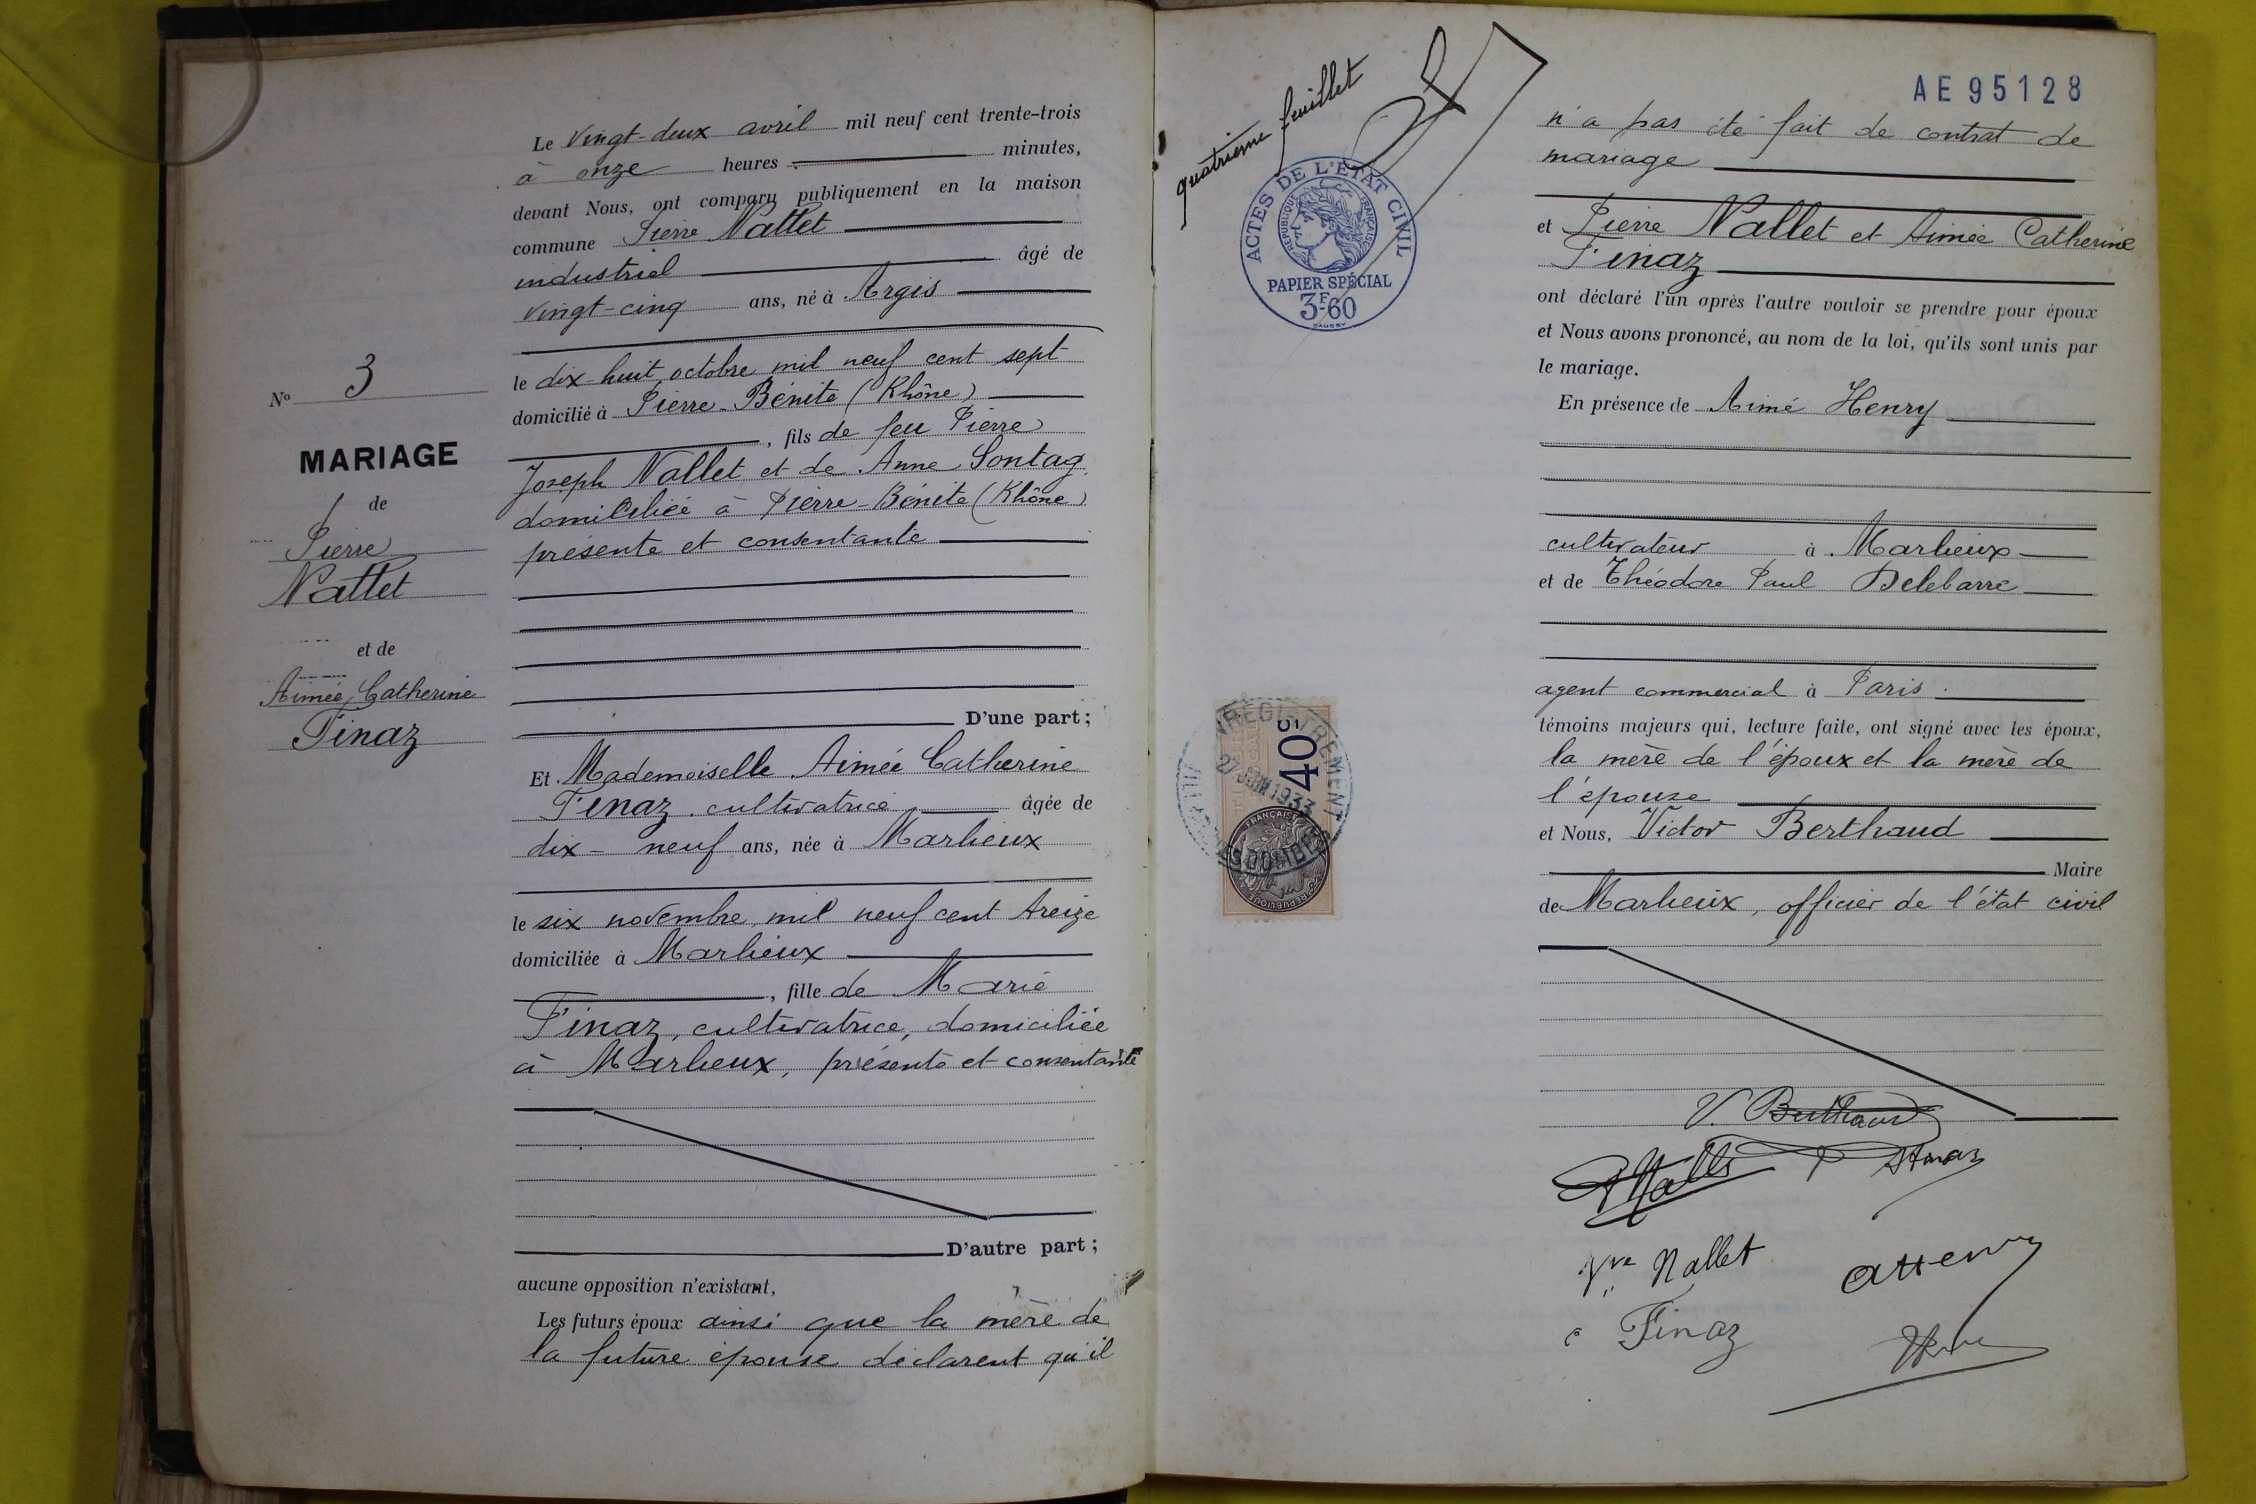 Le vingt-deux avril mil neuf cent trente-trois
à onze heures minutes,
devant Nous, ont comparu publiquement en la maison
commune Pierre Nallet
industriel âgé de
vingt-cinq ans, né à Argis
le dix-huit octobre mil neuf cent sept
domicilié à Pierre-Bénite (Rhône)
, fils de feu Pierre
Joseph Nallet et de Anne Sontag
domiciliée à Pierre-Bénite (Rhône)
présente et consentante
D'une part;
Et Mademoiselle Aimée Catherine
Finaz, cultivatrice âgée de
dix-neuf ans, née à Marlieux
le six novembre mil neuf cent treize
domiciliée à Marlieux
, fille de Marie
Finaz, cultivatrice, domiciliée
à Marlieux, présente et consentante
D'autre part;
aucune opposition n'existant,
Les futurs époux ainsi que la mère de
la future épouse déclarent qu'il
No 3
MARIAGE
de
Pierre
Nallet
et de
Aimée Catherine
Finaz
quatrième feuillet
ACTES DE L'ÉTAT CIVIL
RÉPUBLIQUE FRANÇAISE
PAPIER SPÉCIAL
3F-60
ENREGISTREMENT
40c
27 JUIN 1933
DOMBES
AE 95128
n'a pas été fait de contrat de
mariage
et Pierre Nallet et Aimée Catherine
Finaz
ont déclaré l'un après l'autre vouloir se prendre pour époux
et Nous avons prononcé, au nom de la loi, qu'ils sont unis par
le mariage.
En présence de Aimé Henry
cultivateur à Marlieux
et de Théodore Paul Delebarre
agent commercial à Paris.
témoins majeurs qui, lecture faite, ont signé avec les époux,
la mère de l'époux et la mère de
l'épouse
et Nous, Victor Berthaud
Maire
de Marlieux, officier de l'état civil
V. Berthaud
P Nallet
A Finaz
Vve Nallet
A Henry
Finaz